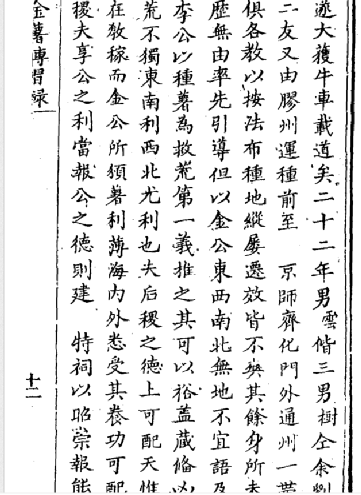 遂大穫牛車載道矣二十二年男雲偕三男樹仝余劉
二友又由膠州運種前至　京師齊化門外通州一帶
俱各教以按法布種地縱屢遷效皆不爽其餘身所未
歷無由率先引導但以金公東西南北無地不宜語及
李公以種薯為救荒第一義推之其可以裕蓋藏備凶
荒不獨東南利西北尤利也夫后稷之德上可配天惟
在教稼而金公所須薯利薄海內外悉受其養功可配
稷夫享公之利當報公之德則建　特祠以昭崇報能
金薯傳習錄　十二